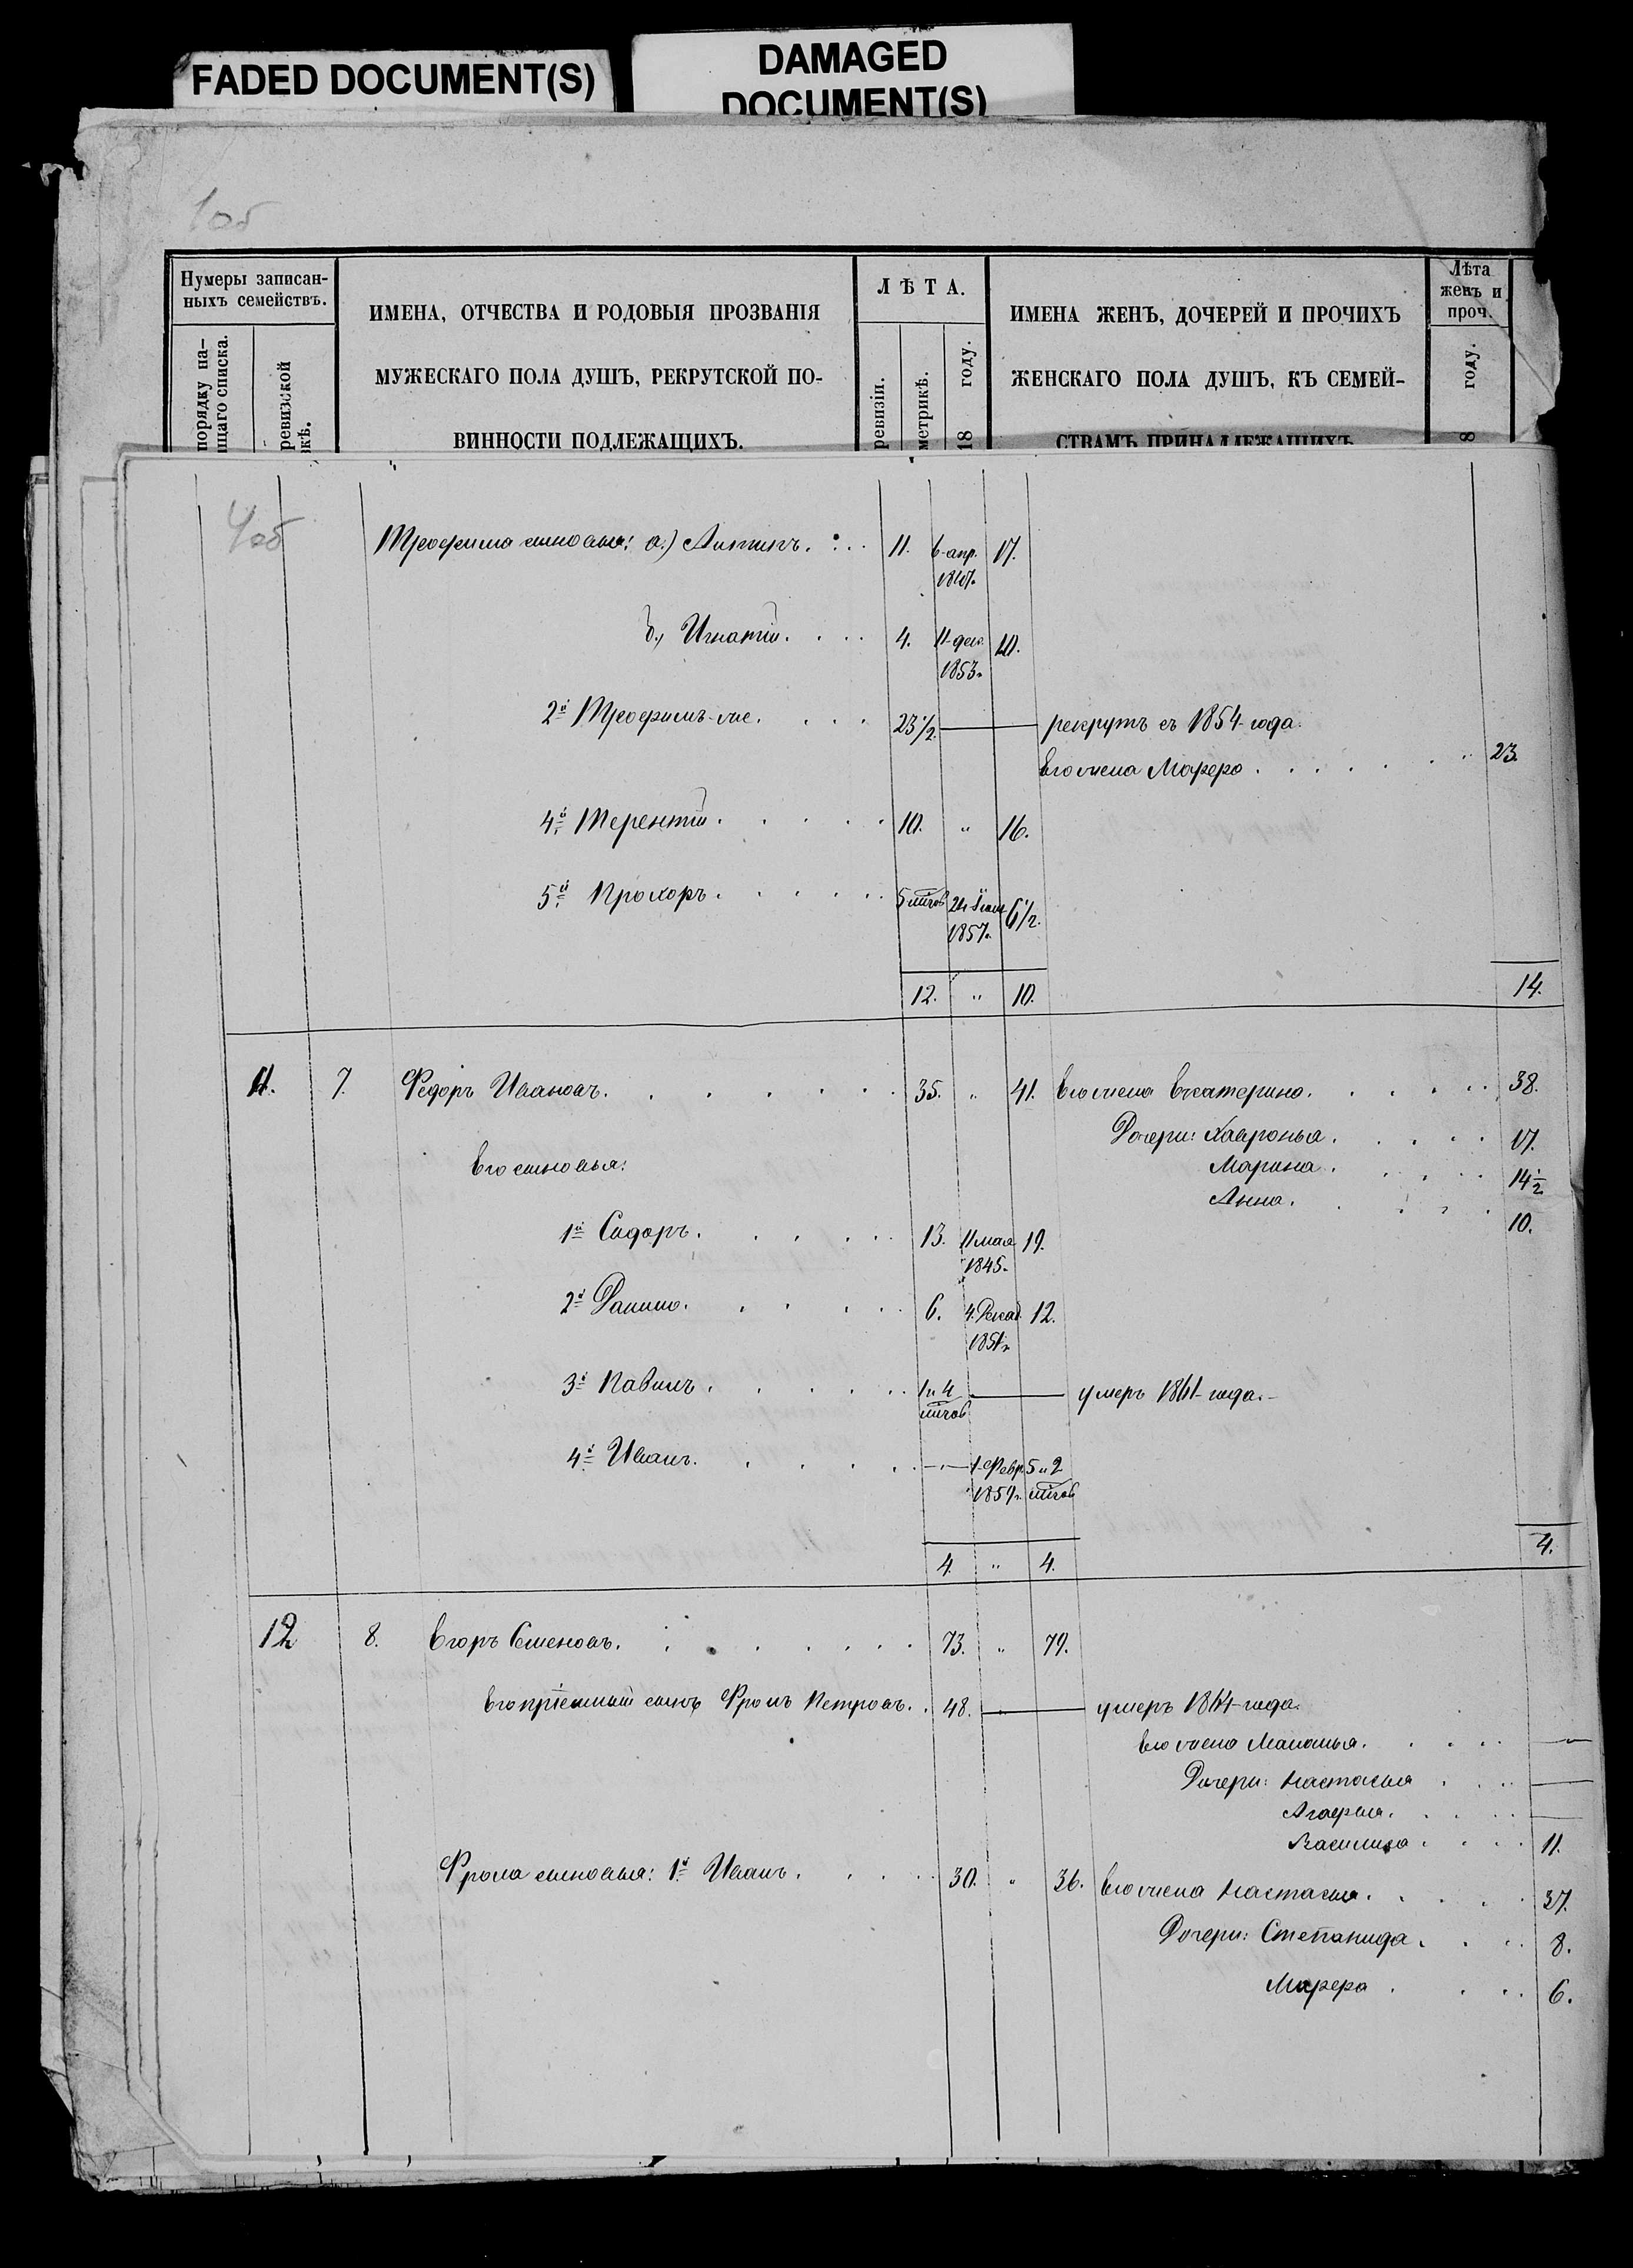 FADED DOCUMENT(S)
DAMAGED
DOCUMENT(S)
1об
Нумеры записан-
ныхъ семействъ.
порядку на-
щаго списка.
ревизской
ИМЕНА, ОТЧЕСТВА И РОДОВЫЯ ПРОЗВАНІЯ
МУЖЕСКАГО ПОЛА ДУШЪ, РЕКРУТСКОЙ ПО-
ВИННОСТИ ПОДЛЕЖАЩИХЪ.
ЛѢТА.
ревизіи.
метрикѣ.
18 году.
ИМЕНА ЖЕНЪ, ДОЧЕРЕЙ И ПРОЧИХЪ
ЖЕНСКАГО ПОЛА ДУШЪ, КЪ СЕМЕЙ-
СТВАМЪ ПРИНАДЛЕЖАЩИХЪ
Лѣта
женъ и
проч.
8 году.
4об
Трофима сыновья: а.) Антипъ. 11. 6 апр. 17.
б., Игнатій. 4. 11 дек. 10.
1853.
2й Трофимъ же. 23 1/2. рекрутъ съ 1854 года.
Его жена Марфа 23.
4й Терентій. 10. " 16.
5й Прохоръ. 5 мѣсов 24 Іюля 6 1/2.
1857.
12. " 10. 14.
11. 7. Федоръ Ивановъ. 35. " 41. Его жена Екатерина. 38.
Дочери: Хавронья. 17.
Его сыновья: Марина. 14 1/2
Анна. 10.
1й Сидоръ. 13. 11 мая 19.
1845.
2й Данило. 6. 4 Декаб. 12.
1851.
3й Павилъ. 1 и 4 умеръ 1861 года.
мѣсов
4й Иванъ. 1 Февр. 5 и 2
1859. мѣсов
4. " 4. 4.
12 8. Егоръ Семеновъ. 73. " 79.
Его пріемный сынъ Фролъ Петровъ. 48. умеръ 1864 года.
Его жена Маланья.
Дочери: Настасья
Агафья.
Василиса 11.
Фрола сыновья: 1й Иванъ. 30. " 36. Его жена Настасья. 37.
Дочери: Степанида. 8.
Марфа 6.